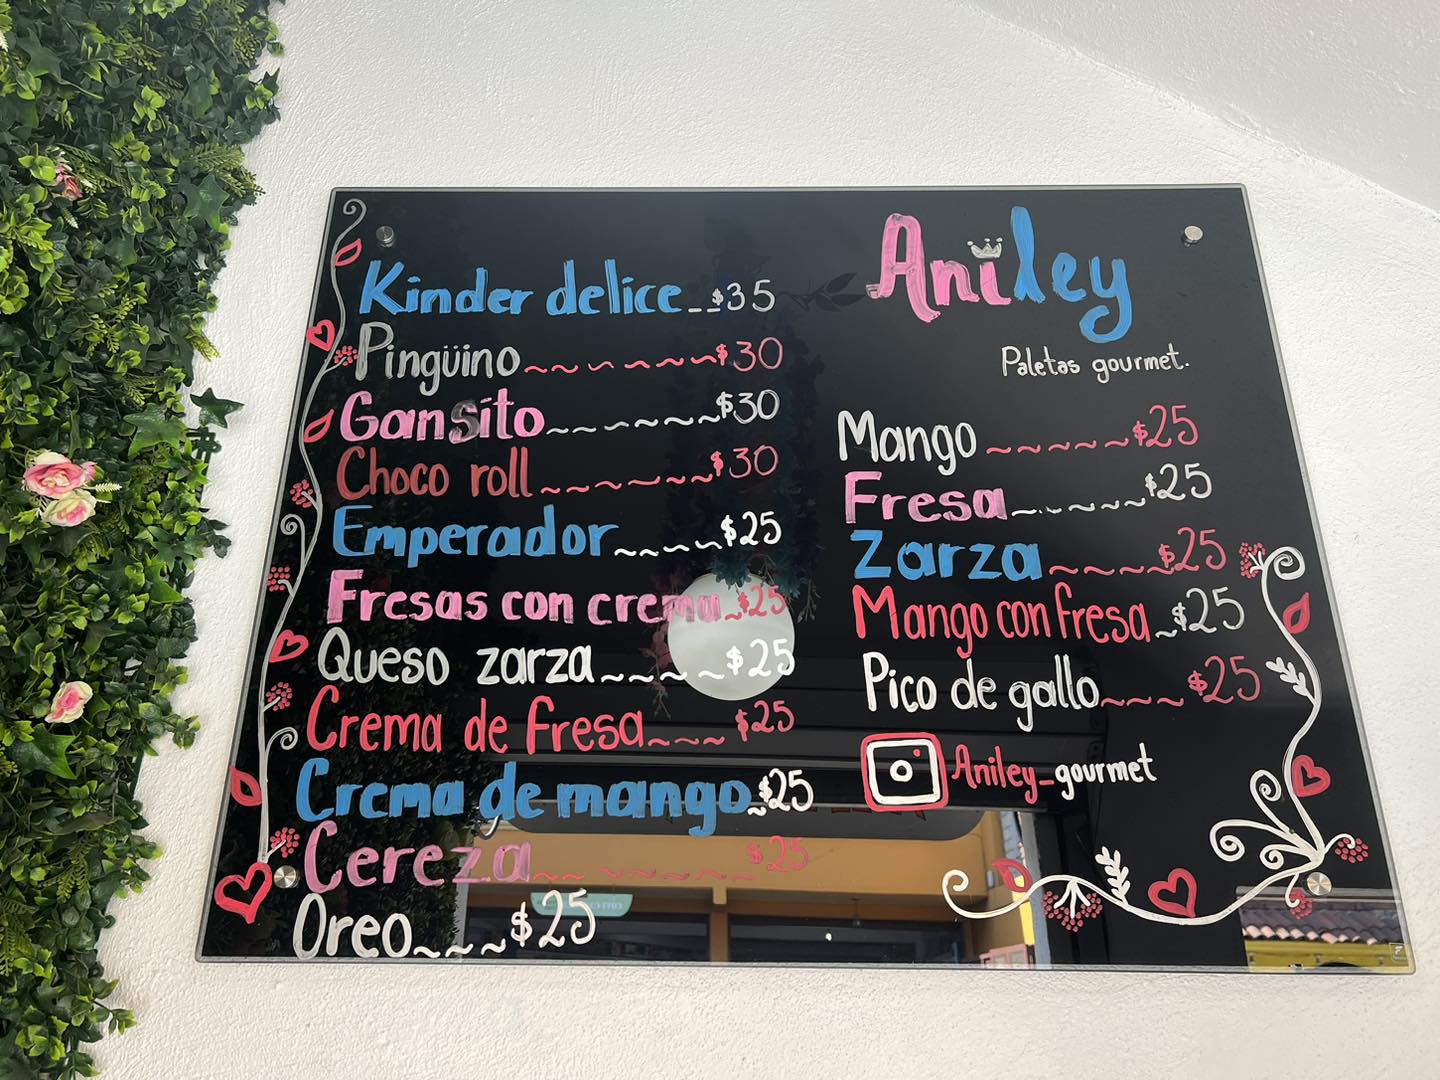 Kinder delice__$35
Pingüino~~~~~~~$30
Gansito~~~~~~~$30
Choco roll~~~~~~~$30
Emperador~~~~~$25
Fresas con crema~$25
Queso zarza~~~~~$25
Crema de fresa~~~~$25
Crema de mango~$25
Cereza~~~~~~~~$25
Oreo~~~~$25
Aniley
Paletas gourmet.
Mango~~~~~~$25
Fresa~~~~~~$25
Zarza~~~~~$25
Mango con fresa~$25
Pico de gallo~~~~$25
Aniley_gourmet